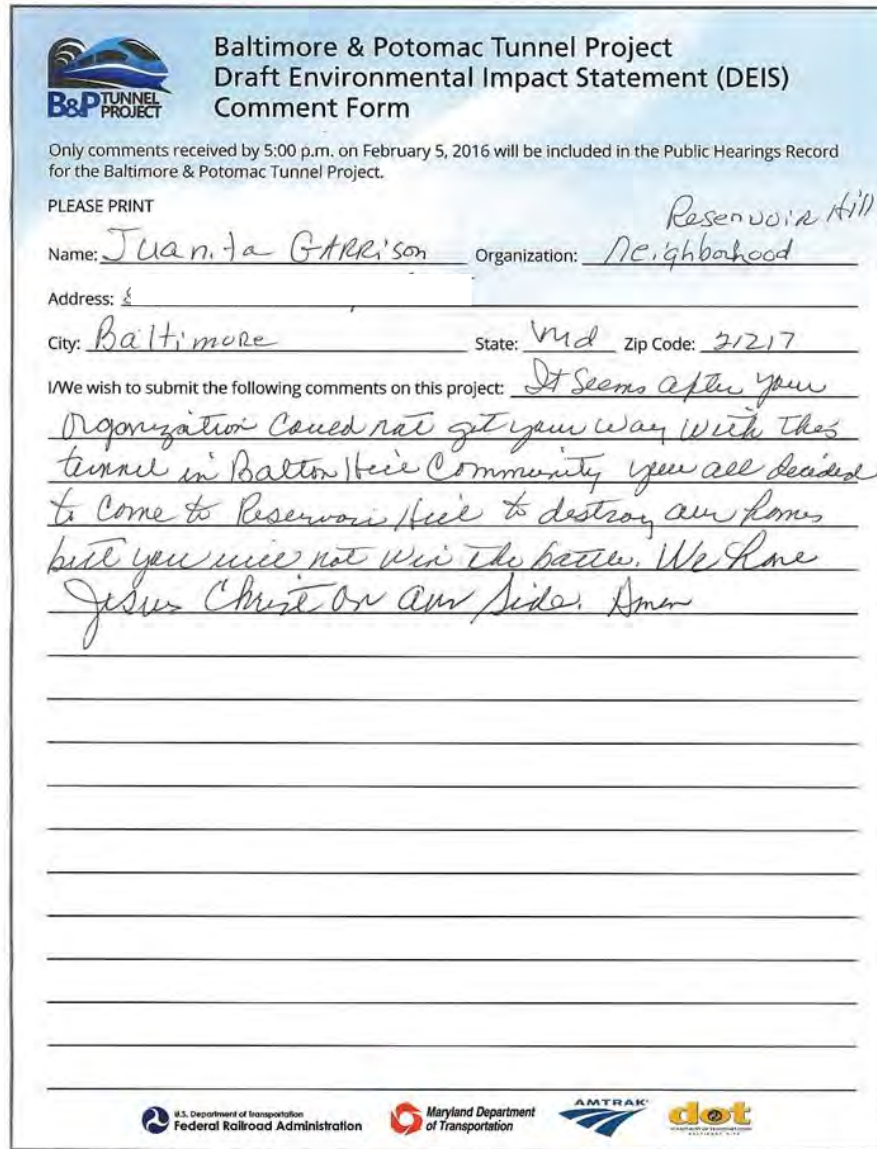 B&P TUNNEL PROJECT
Baltimore & Potomac Tunnel Project
Draft Environmental Impact Statement (DEIS)
Comment Form
Only comments received by 5:00 p.m. on February 5, 2016 will be included in the Public Hearings Record
for the Baltimore & Potomac Tunnel Project.
PLEASE PRINT
Reservoir Hill
Name: Juanita GARRison Organization: Neighborhood
Address:
City: Baltimore State: Md Zip Code: 21217
I/We wish to submit the following comments on this project: It Seems after your
Organization Could not get your way with this
tunnel in Bolton Hill Community you all decided
to Come to Reservoir Hill to destroy our homes
but you will not win the battle. We have
Jesus Christ On our Side. Amen
U.S. Department of Transportation
Federal Railroad Administration
Maryland Department
of Transportation
AMTRAK
dot